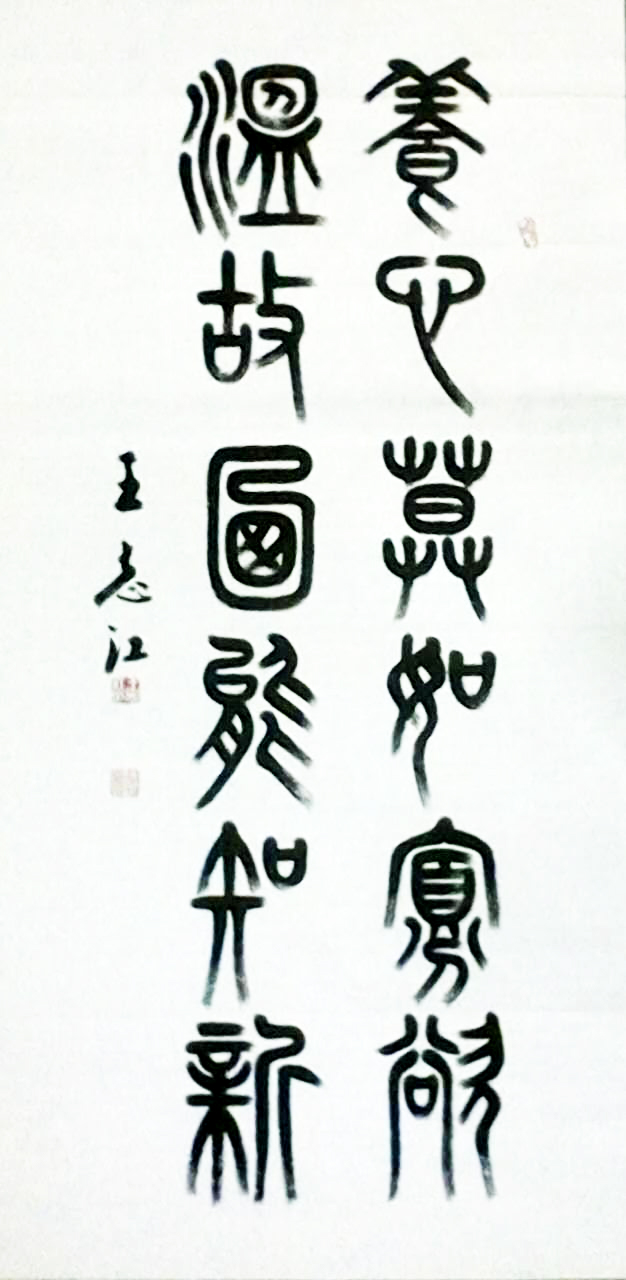 養心莫如寡欲
溫故能知新
王志江